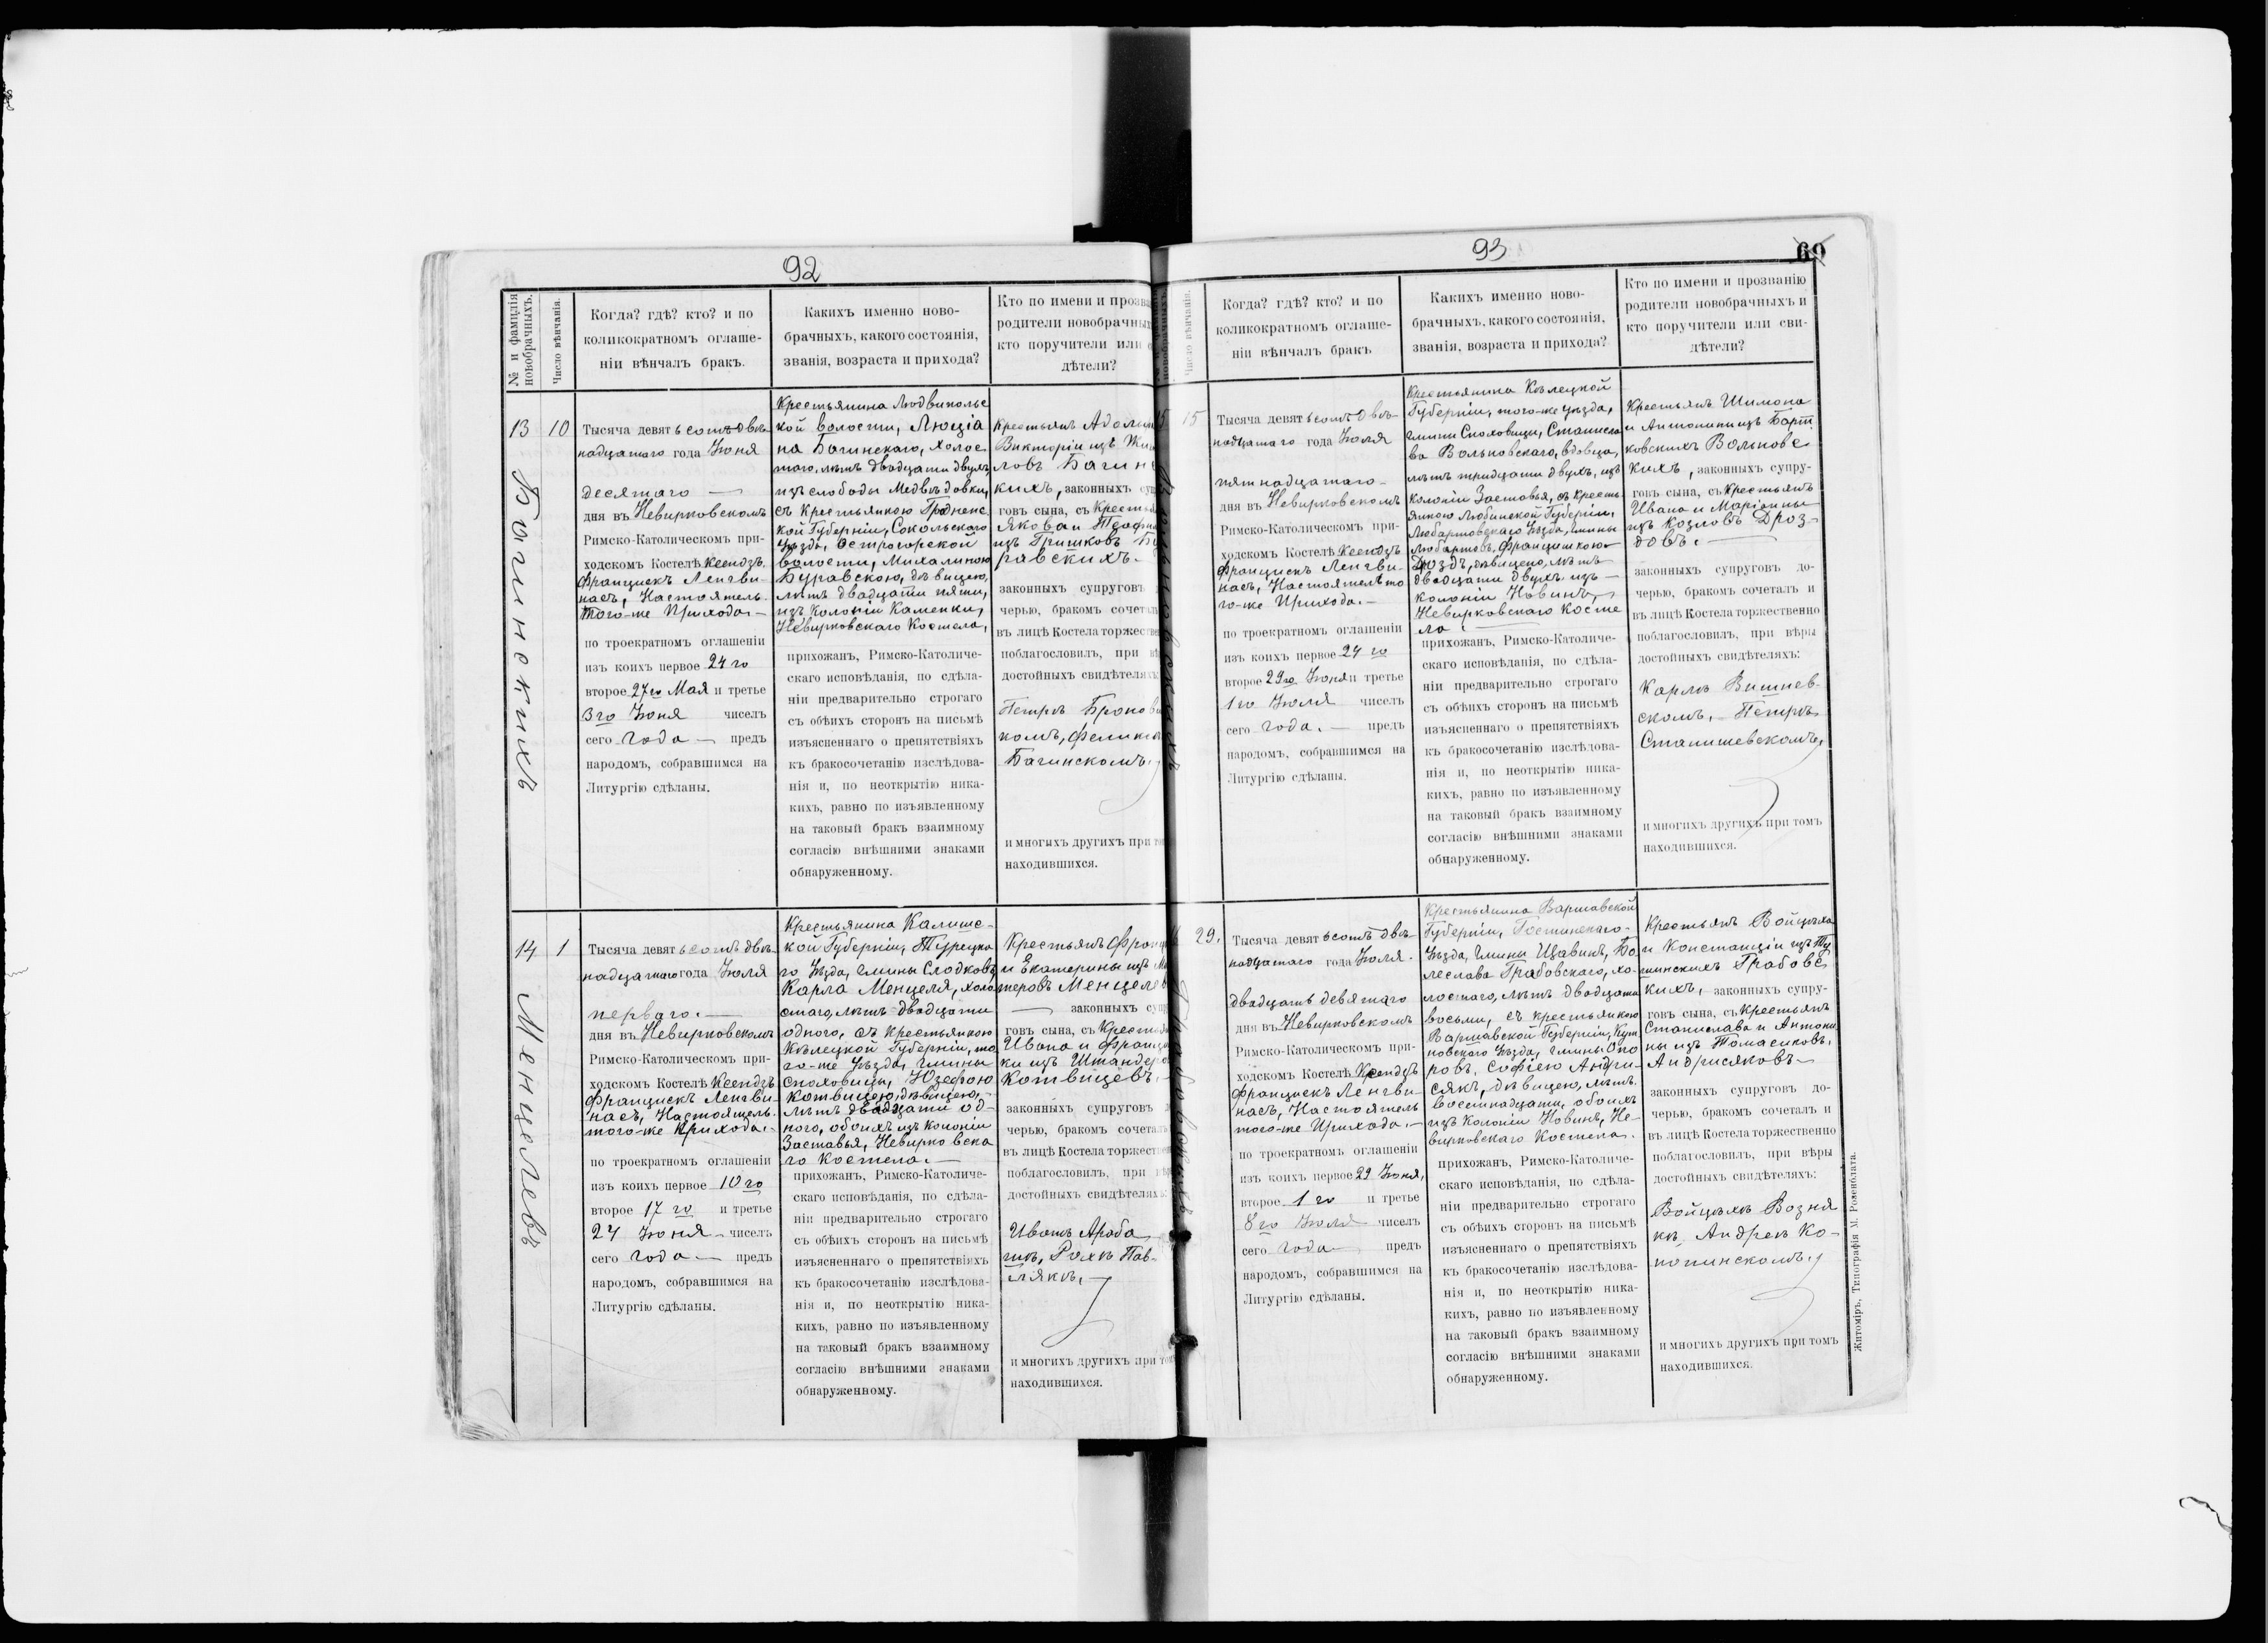 92
№ и фамилія
новобрачныхъ.
Число вѣнчанія.
Когда? гдѣ? кто? и по
коликократномъ оглаше-
ніи вѣнчалъ бракъ.
Какихъ именно ново-
брачныхъ, какого состоянія,
званія, возраста и прихода?
Кто по имени и прозва
родители новобрачных
кто поручители или
дѣтели?
13
Багинскихъ
10
Тысяча девятьсотъ двѣ-
надцатаго года Іюня
десятаго —
дня въ Невирковскомъ
Римско-Католическомъ при-
ходскомъ Костелѣ Ксендзъ
Францискъ Ленгви-
насъ, Настоятель
того-же Прихода. —
по троекратномъ оглашеніи
изъ коихъ первое 24 го
второе 27 го Мая и третье
3 го Іюня чиселъ
сего года — предъ
народомъ, собравшимся на
Литургію сдѣланы.
Крестьянина Людвипольс
кой волости, Люціа
на Багинскаго, холос
таго, лѣтъ двадцати двухъ,
изъ слободы Медвѣдовки,
съ крестьянкою Гродненс
кой Губерніи, Сокольскаго
Уѣзда, Острогорской
волости, Михалиною
Буравскою, дѣвицею,
лѣтъ двадцати пяти,
изъ Колоніи Каменки,
Невирковскаго Костела,
прихожанъ, Римско-Католиче-
скаго исповѣданія, по сдѣла-
ніи предварительно строгаго
съ обѣихъ сторонъ на письмѣ
изъясненнаго о препятствіяхъ
къ бракосочетанію изслѣдова-
нія и, по неоткрытію ника-
кихъ, равно по изъявленному
на таковый бракъ взаимному
согласію внѣшними знаками
обнаруженному.
Крестьянъ Адоль
Викторіи изъ
ловъ Багинс
кихъ, законныхъ
говъ сына, съ Крестья
Якова и Теофи
изъ Гришковъ Бу
равскихъ. —
законныхъ супруговъ
черью, бракомъ сочета
въ лицѣ Костела торжестве
поблагословилъ, при
достойныхъ свидѣтеляхъ
Петръ
комъ, Феликсъ
Багинскомъ,
и многихъ другихъ при
находившихся.
14
Менцелевъ
1
Тысяча девятьсотъ двѣ-
надцатаго года Іюля
перваго. —
дня въ Невирковскомъ
Римско-Католическомъ при-
ходскомъ Костелѣ Ксендзъ
Францискъ Ленгви-
насъ, Настоятель
того-же Прихода. —
по троекратномъ оглашеніи
изъ коихъ первое 10 го
второе 17 го и третье
24 Іюня — чиселъ
сего года — предъ
народомъ, собравшимся на
Литургію сдѣланы.
Крестьянина Калишс-
кой Губерніи, Турецка
го Уѣзда, гмины Слодковъ,
Карла Менцеля, холо
стаго, лѣтъ двадцати
одного, съ крестьянкою
Кѣлецкой Губерніи, то
го-же Уѣзда, гмины
Сноховицы, Юзефою
Котвицею, дѣвицею,
лѣтъ двадцати од-
ного, обоихъ изъ Колоніи
Заставья, Невирковска
го Костела. —
прихожанъ, Римско-Католиче-
скаго исповѣданія, по сдѣла-
ніи предварительно строгаго
съ обѣихъ сторонъ на письмѣ
изъясненнаго о препятствіяхъ
къ бракосочетанію изслѣдова-
нія и, по неоткрытію ника-
кихъ, равно по изъявленному
на таковый бракъ взаимному
согласію внѣшними знаками
обнаруженному.
Крестьянъ Фран
и Екатерины изъ
теровъ Менцелев
— законныхъ
говъ сына, съ Крестья
Ивана и Франци
ки изъ Штандер
Котвицевъ. —
законныхъ супруговъ
черью, бракомъ сочета
въ лицѣ Костела торжестве
поблагословилъ, при
достойныхъ свидѣтеляхъ:
Иванъ Араба
шкъ, Рохъ Пав-
лякъ, —
и многихъ другихъ при
находившихся.
93
60
Число вѣнчанія.
Когда? гдѣ? кто? и по
коликократномъ оглаше-
ніи вѣнчалъ бракъ
Какихъ именно ново-
брачныхъ, какого состоянія,
званія, возраста и прихода?
Кто по имени и прозванію
родители новобрачныхъ и
кто поручители или сви-
дѣтели?
15
15
Тысяча девятьсотъ двѣ-
надцатаго года Іюля
пятнадцатаго —
дня въ Невирковскомъ
Римско-Католическомъ при-
ходскомъ Костелѣ Ксендзъ
Францискъ Ленгви-
насъ, Настоятель то
го-же Прихода. —
по троекратномъ оглашеніи
изъ коихъ первое 24 го
второе 29 го Іюня и третье
1 го Іюля чиселъ
сего года. — предъ
народомъ, собравшимся на
Литургію сдѣланы.
Крестьянина Кѣлецкой
Губерніи, того-же уѣзда,
гмины Сноховицы, Станисла
ва Вольновскаго, вдовца,
лѣтъ тридцати двухъ, изъ
колоніи Заставья, съ Кресть
янкою Люблинской Губерніи,
Любартовскаго Уѣзда, гмины
Любартовъ, Францишкою
Дроздъ, дѣвицею, лѣтъ
двадцати двухъ изъ —
колоніи Новинъ,
Невирковскаго Косте
ла. —
прихожанъ, Римско-Католиче-
скаго исповѣданія, по сдѣла-
ніи предварительно строгаго
съ обѣихъ сторонъ на письмѣ
изъясненнаго о препятствіяхъ
къ бракосочетанію изслѣдова-
нія и, по неоткрытію ника-
кихъ, равно по изъявленному
на таковый бракъ взаимному
согласію внѣшними знаками
обнаруженному.
Крестьянъ Шимона
и Антонины изъ Барт
ковскихъ Вольновс
кихъ, законныхъ супру-
говъ сына, съ Крестьянъ
Ивана и Маріанны
изъ Козловъ Дроз-
довъ. —
законныхъ супруговъ до-
черью, бракомъ сочеталъ и
въ лицѣ Костела торжественно
поблагословилъ, при вѣры
достойныхъ свидѣтеляхъ:
Карлъ Вишнев-
скомъ, — Петръ
Станишевскомъ,
и многихъ другихъ при томъ
находившихся.
29.
Тысяча девятьсотъ двѣ-
надцатаго года Іюля
двадцать девятаго
дня въ Невирковскомъ
Римско-Католическомъ при-
ходскомъ Костелѣ Ксендзъ
Францискъ Ленгви-
насъ, Настоятель
того-же Прихода. —
по троекратномъ оглашеніи
изъ коихъ первое 29 Іюня,
второе 1 го и третье
8 го Іюля чиселъ
сего года — предъ
народомъ, собравшимся на
Литургію сдѣланы.
Крестьянина Варшавской
Губерніи, Гостинскаго
Уѣзда, Гмины Щавинъ, Бо
леслава Грабовскаго, хо-
лостаго, лѣтъ двадцати
восьми, съ крестьянкою
Варшавской Губерніи, Кут
новскаго Уѣзда, гмины Опо
ровъ, Софіею Андри-
сякъ, дѣвицею, лѣтъ
восемнадцати, обоихъ
изъ Колоніи Новинъ, Не-
вирковскаго Костела.
прихожанъ, Римско-Католиче-
скаго исповѣданія, по сдѣла-
ніи предварительно строгаго
съ обѣихъ сторонъ на письмѣ
изъясненнаго о препятствіяхъ
къ бракосочетанію изслѣдова-
нія и, по неоткрытію ника-
кихъ, равно по изъявленному
на таковый бракъ взаимному
согласію внѣшними знаками
обнаруженному.
Крестьянъ Войцѣха
и Констанціи изъ Ту
шинскихъ Грабовс
кихъ, законныхъ супру-
говъ сына, съ Крестьянъ
Станислава и Антони
ны изъ Томасиковъ,
Андрисяковъ —
законныхъ супруговъ до-
черью, бракомъ сочеталъ и
въ лицѣ Костела торжественно
поблагословилъ, при вѣры
достойныхъ свидѣтеляхъ:
Войцѣхъ Возня
къ, Андрей Ко-
нопинскомъ,
и многихъ другихъ при томъ
находившихся.
Житоміръ, Типографія М. Розенблата.